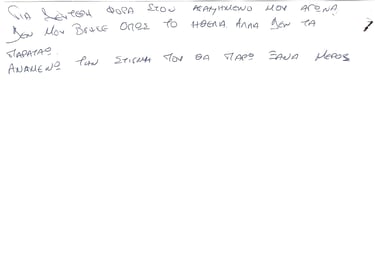 ΓΙΑ ΔΕΥΤΕΡΗ ΦΟΡΑ ΣΤΟΝ ΑΓΑΠΗΜΕΝΟ ΜΟΥ ΑΓΩΝΑ
ΔΕΝ ΜΟΥ ΒΓΗΚΕ ΟΠΩΣ ΤΟ ΗΘΕΛΑ ΑΛΛΑ ΔΕΝ ΤΑ
ΠΑΡΑΤΑΩ
ΑΝΑΜΕΝΩ ΤΗΝ ΣΤΙΓΜΗ ΠΟΥ ΘΑ ΠΑΡΩ ΞΑΝΑ ΜΕΡΟΣ